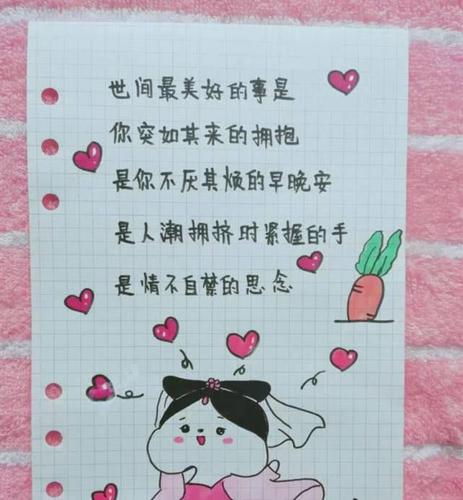 世间最美好的事是
你突如其来的拥抱
是你不厌其烦的早晚安
是人潮拥挤时紧握的手
是情不自禁的思念